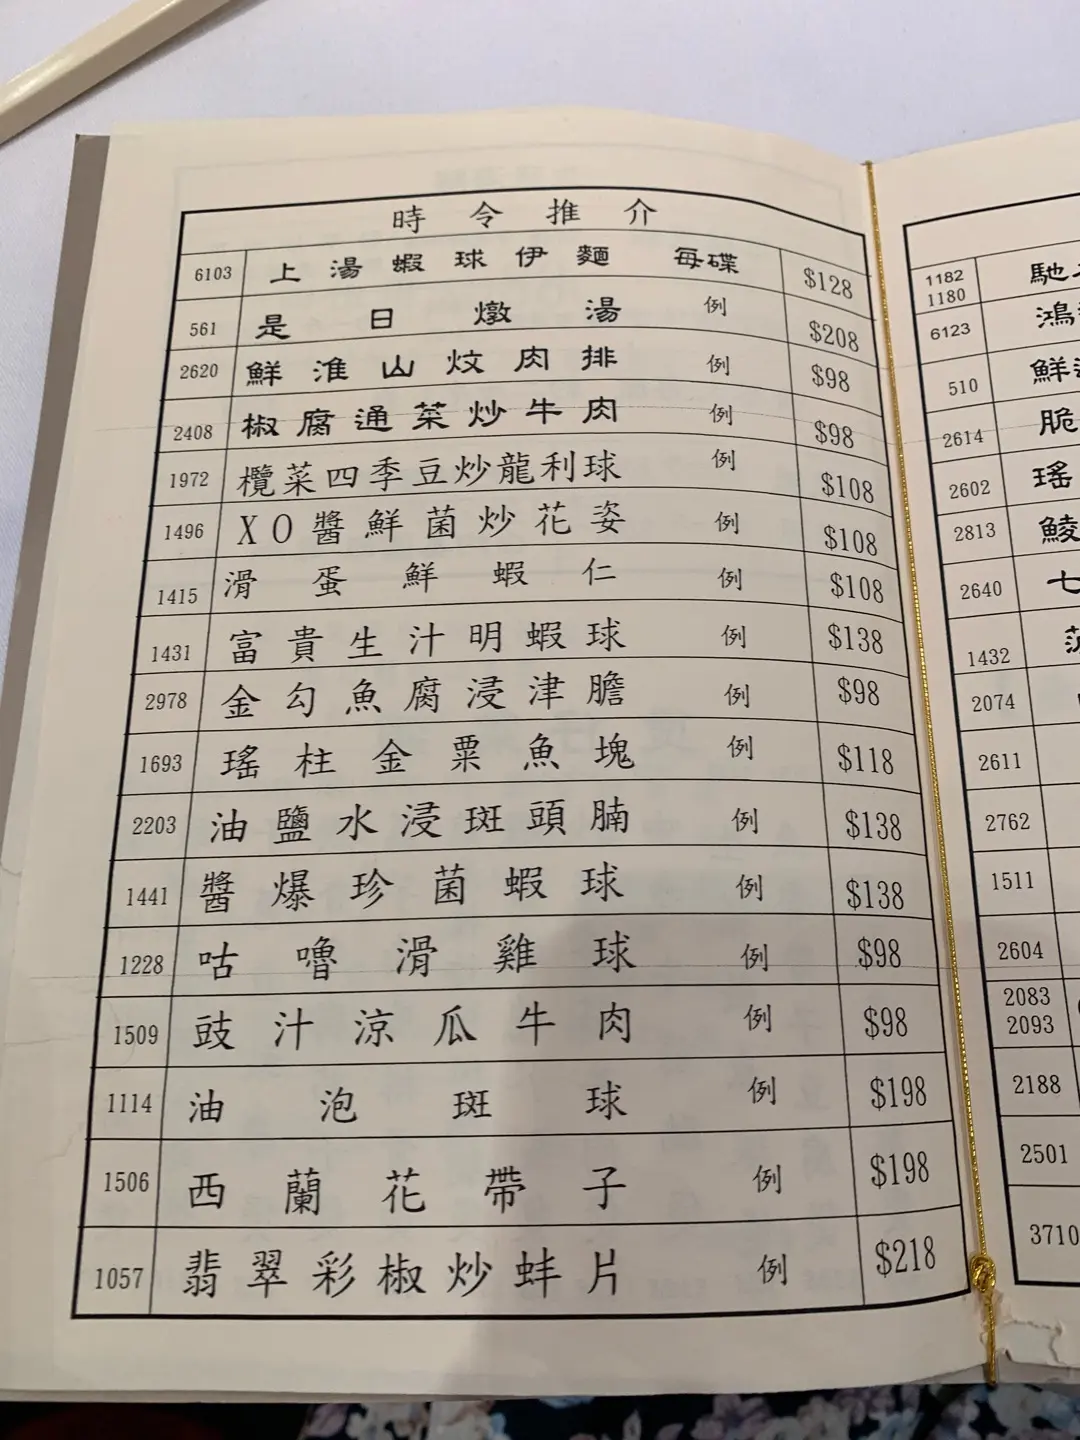 時令推介
6103 上湯蝦球伊麵 每碟 $128
561 是日燉湯 例 $208
2620 鮮淮山炆肉排 例 $98
2408 椒腐通菜炒牛肉 例 $98
1972 欖菜四季豆炒龍利球 例 $108
1496 XO醬鮮菌炒花姿 例 $108
1415 滑蛋鮮蝦仁 例 $108
1431 富貴生汁明蝦球 例 $138
2978 金勾魚腐浸津膽 例 $98
1693 瑤柱金粟魚塊 例 $118
2203 油鹽水浸斑頭腩 例 $138
1441 醬爆珍菌蝦球 例 $138
1228 咕嚕滑雞球 例 $98
1509 豉汁涼瓜牛肉 例 $98
1114 油泡斑球 例 $198
1506 西蘭花帶子 例 $198
1057 翡翠彩椒炒蚌片 例 $218
1182 馳
1180
6123 鴻
510 鮮
2614 脆
2602 瑤
2813 鯪
2640 七
1432
2074
2611
2762
1511
2604
2083
2093
2188
2501
3710